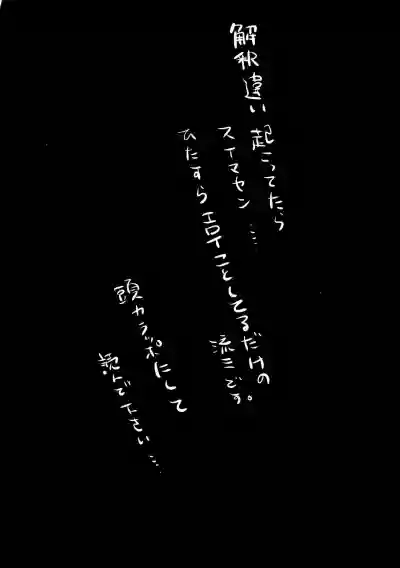 解釈違い
起こってたら
スイマセン…
ひたすらエロイことしてるだけの
流三です。
頭カラッポにして
読んで下さい…